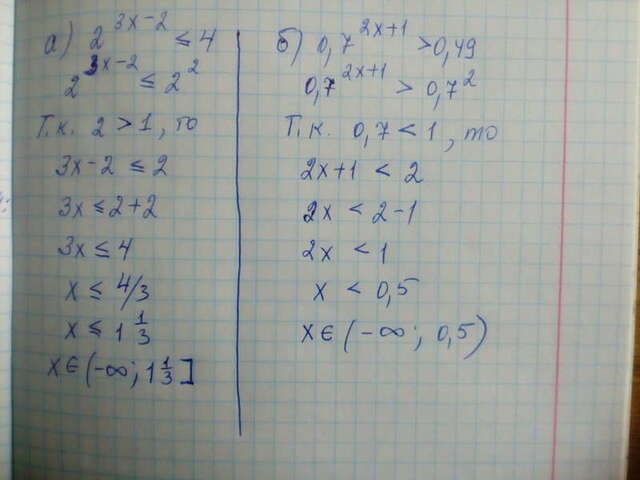 а) 2^(3x-2) ≤ 4
2^(3x-2) ≤ 2^2
Т.к. 2 > 1, то
3x-2 ≤ 2
3x ≤ 2+2
3x ≤ 4
x ≤ 4/3
x ≤ 1 1/3
x ∈ (-∞; 1 1/3]
б) 0,7^(2x+1) > 0,49
0,7^(2x+1) > 0,7^2
Т.к. 0,7 < 1, то
2x+1 < 2
2x < 2-1
2x < 1
x < 0,5
x ∈ (-∞; 0,5)